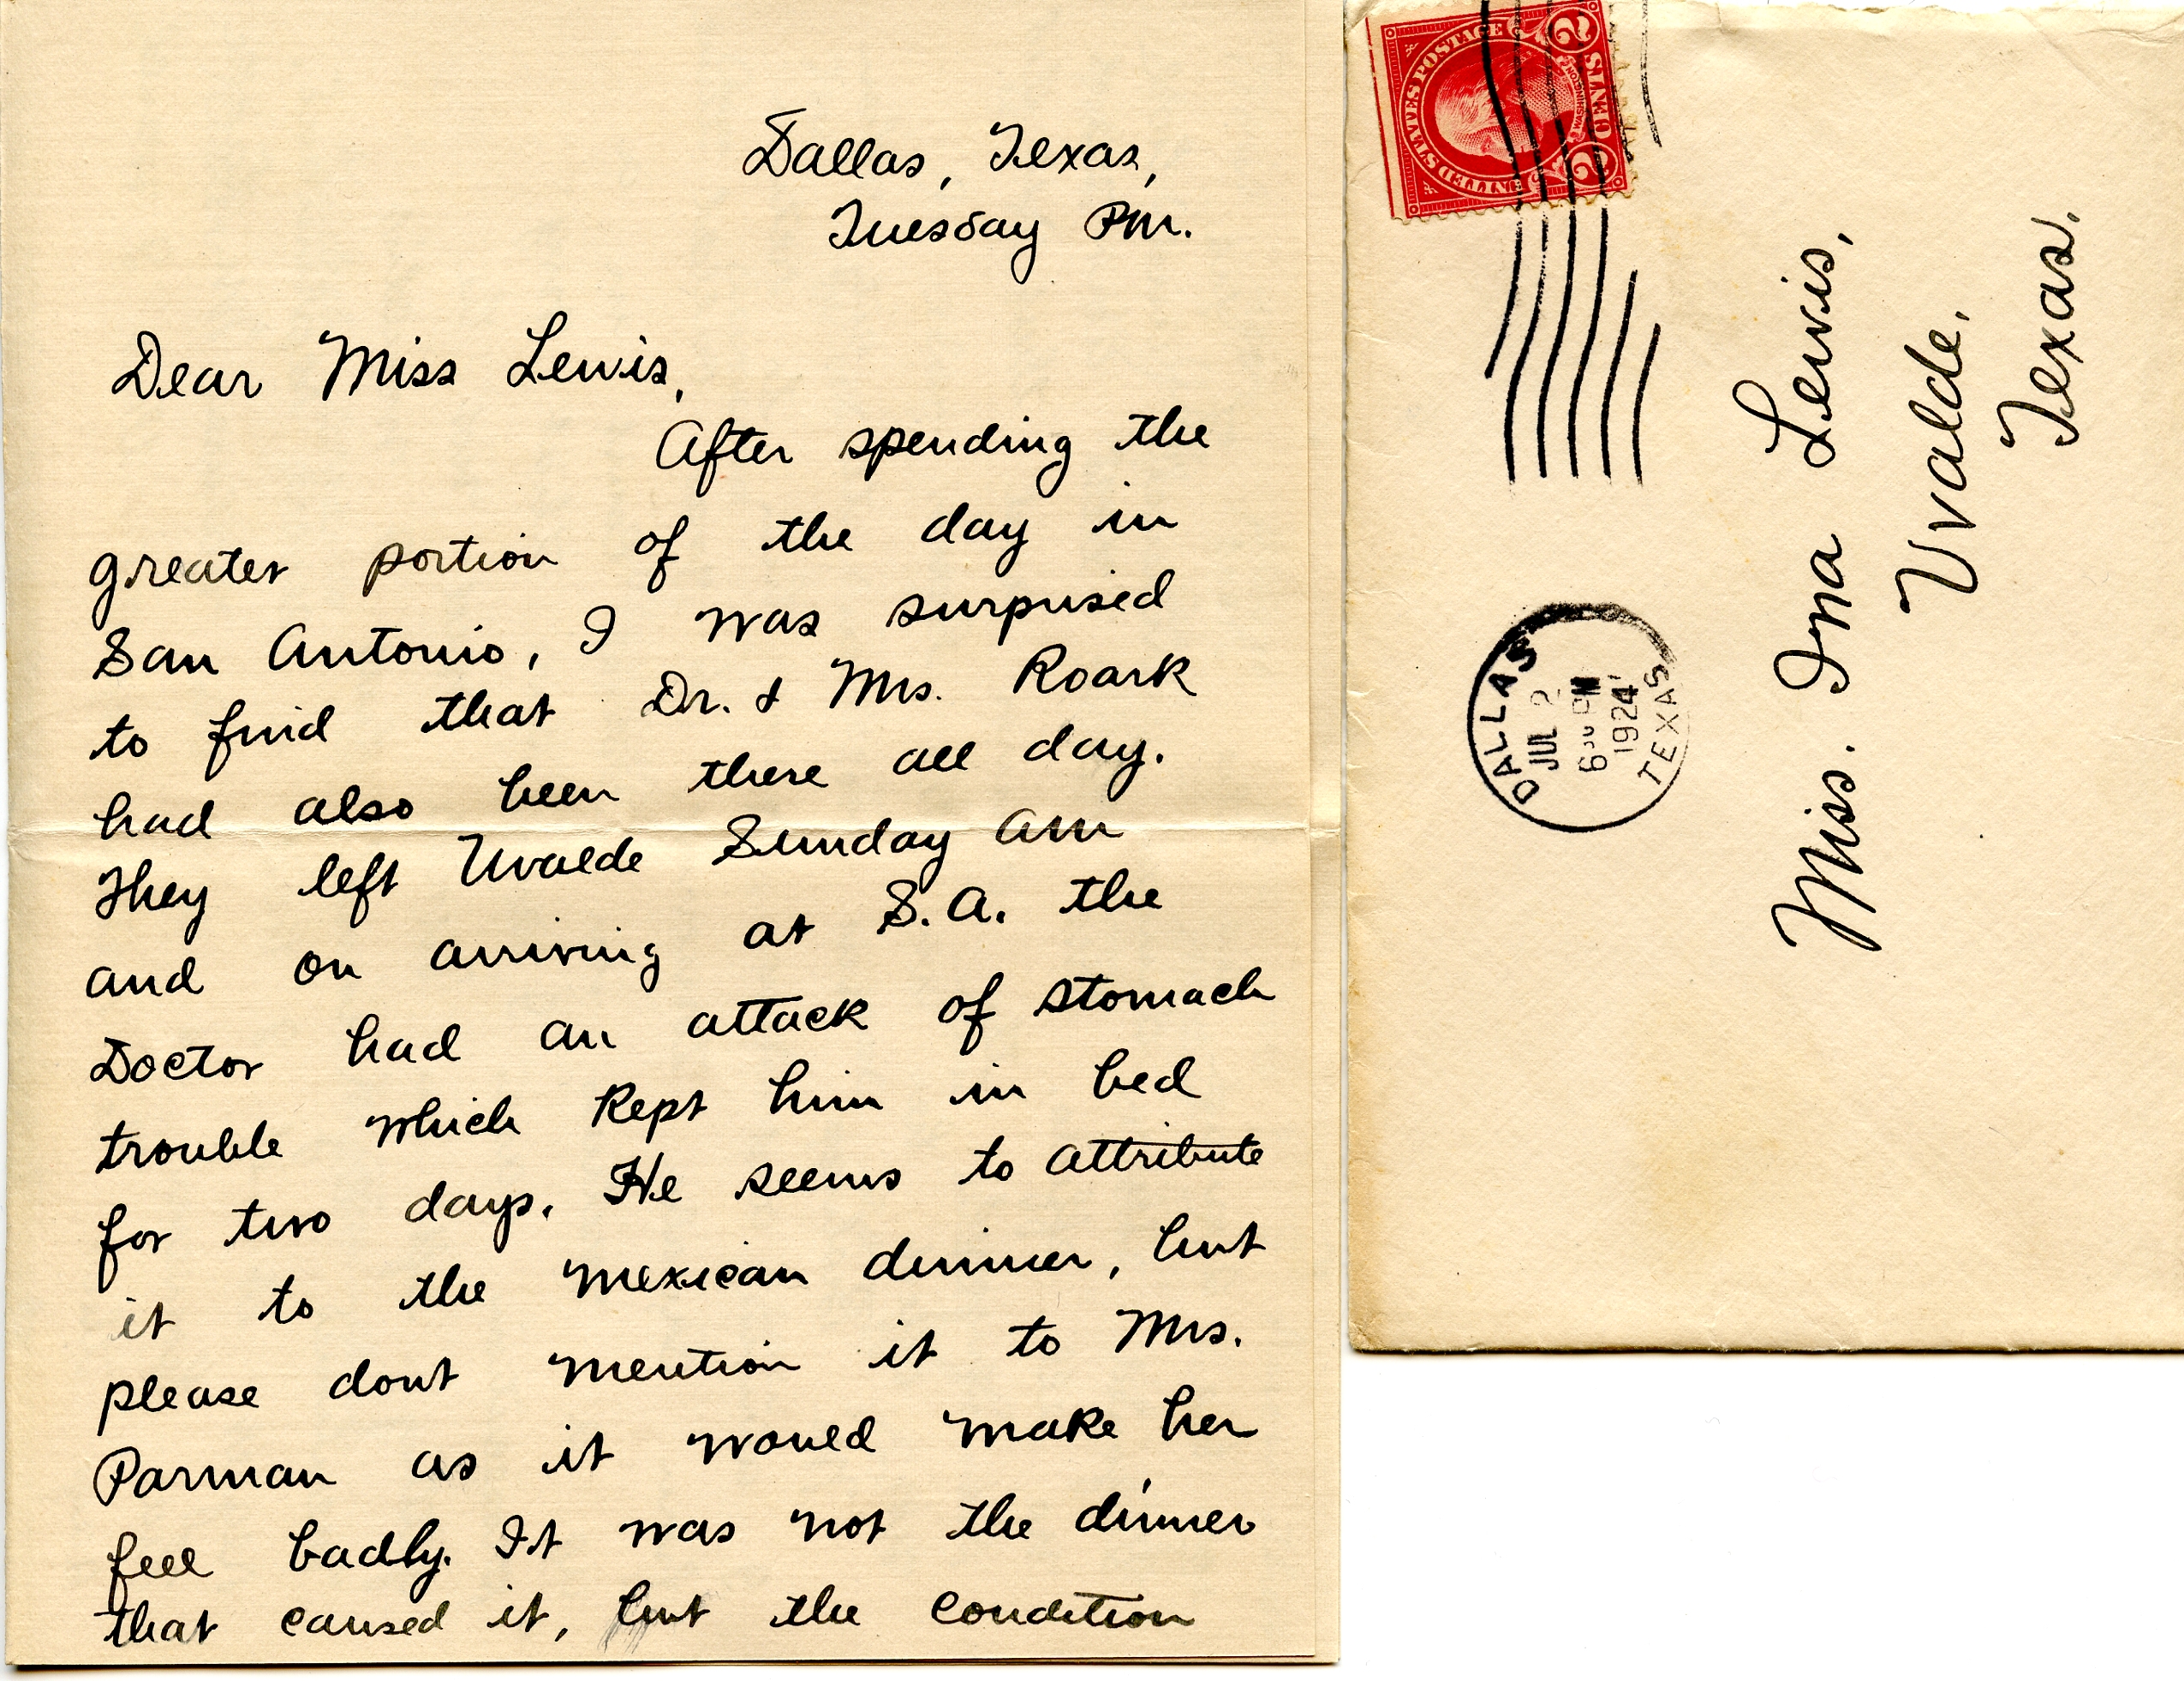 Dallas, Texas,
Tuesday PM.
Dear Miss Lewis,
After spending the
greater portion of the day in
San Antonio, I was surprised
to find that Dr. & Mrs. Roark
had also been there all day.
They left Uvalde Sunday AM
and on arriving at S.A. the
Doctor had an attack of stomach
trouble which kept him in bed
for two days. He seems to attribute
it to the Mexican dinner, but
please dont mention it to Mrs.
Parman as it would make her
feel badly. It was not the dinner
that caused it, but the condition
UNITED STATES POSTAGE
WASHINGTON
2 CENTS 2
DALLAS
JUL 2
PM
1924
TEXAS
Miss. Ina Lewis,
Uvalde,
Texas.